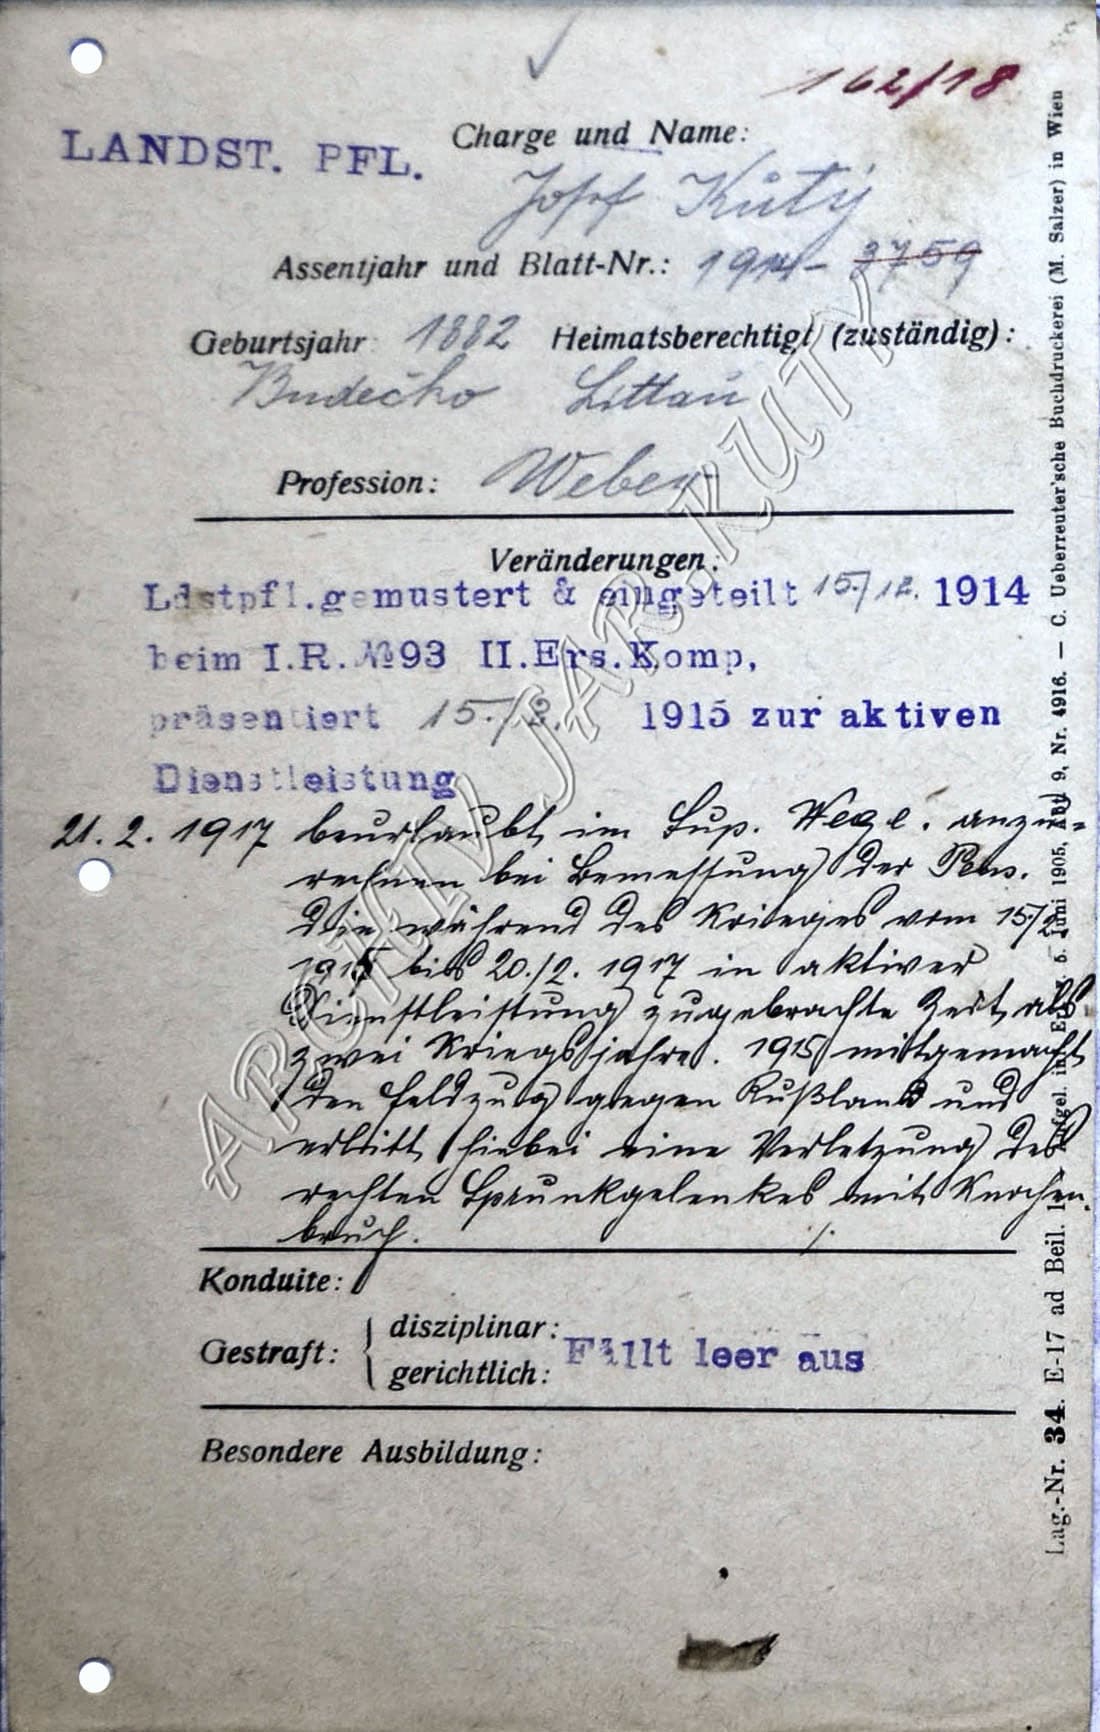 162/18
LANDST. PFL.
Charge und Name:
Josef Kutý
Assentjahr und Blatt-Nr.: 1914 - 3759
Geburtsjahr 1882 Heimatsberechtigt (zuständig):
Budečko Littau
Profession: Weber
Veränderungen:
Ldstpfl.gemustert & eingeteilt 15./12. 1914
beim I.R.№93 II.Ers.Komp,
präsentiert 15./2. 1915 zur aktiven
Dienstleistung
21.2.1917 beurlaubt im Sup. Wege. anzu-
rechnen bei Bemessung der Pens.
die während des Krieges vom 15./2.
1915 bis 20./2. 1917 in aktiver
Dienstleistung zugebrachte Zeit als
zwei Kriegsjahre. 1915 mitgemacht
den Feldzug gegen Rußland und
erlitt hiebei eine Verletzung des
rechten Sprunkgelenkes mit Knochen
bruch. ./.
Konduite:
Gestraft: { disziplinar:
gerichtlich: Fällt leer aus
Besondere Ausbildung:
Lag.-Nr. 34. E-17 ad Beil. 5. Juni 1905, Abt 9, Nr. 4916. — C. Ueberreuter'sche Buchdruckerei (M. Salzer) in Wien
ARCHIV JAR.KUTÝ